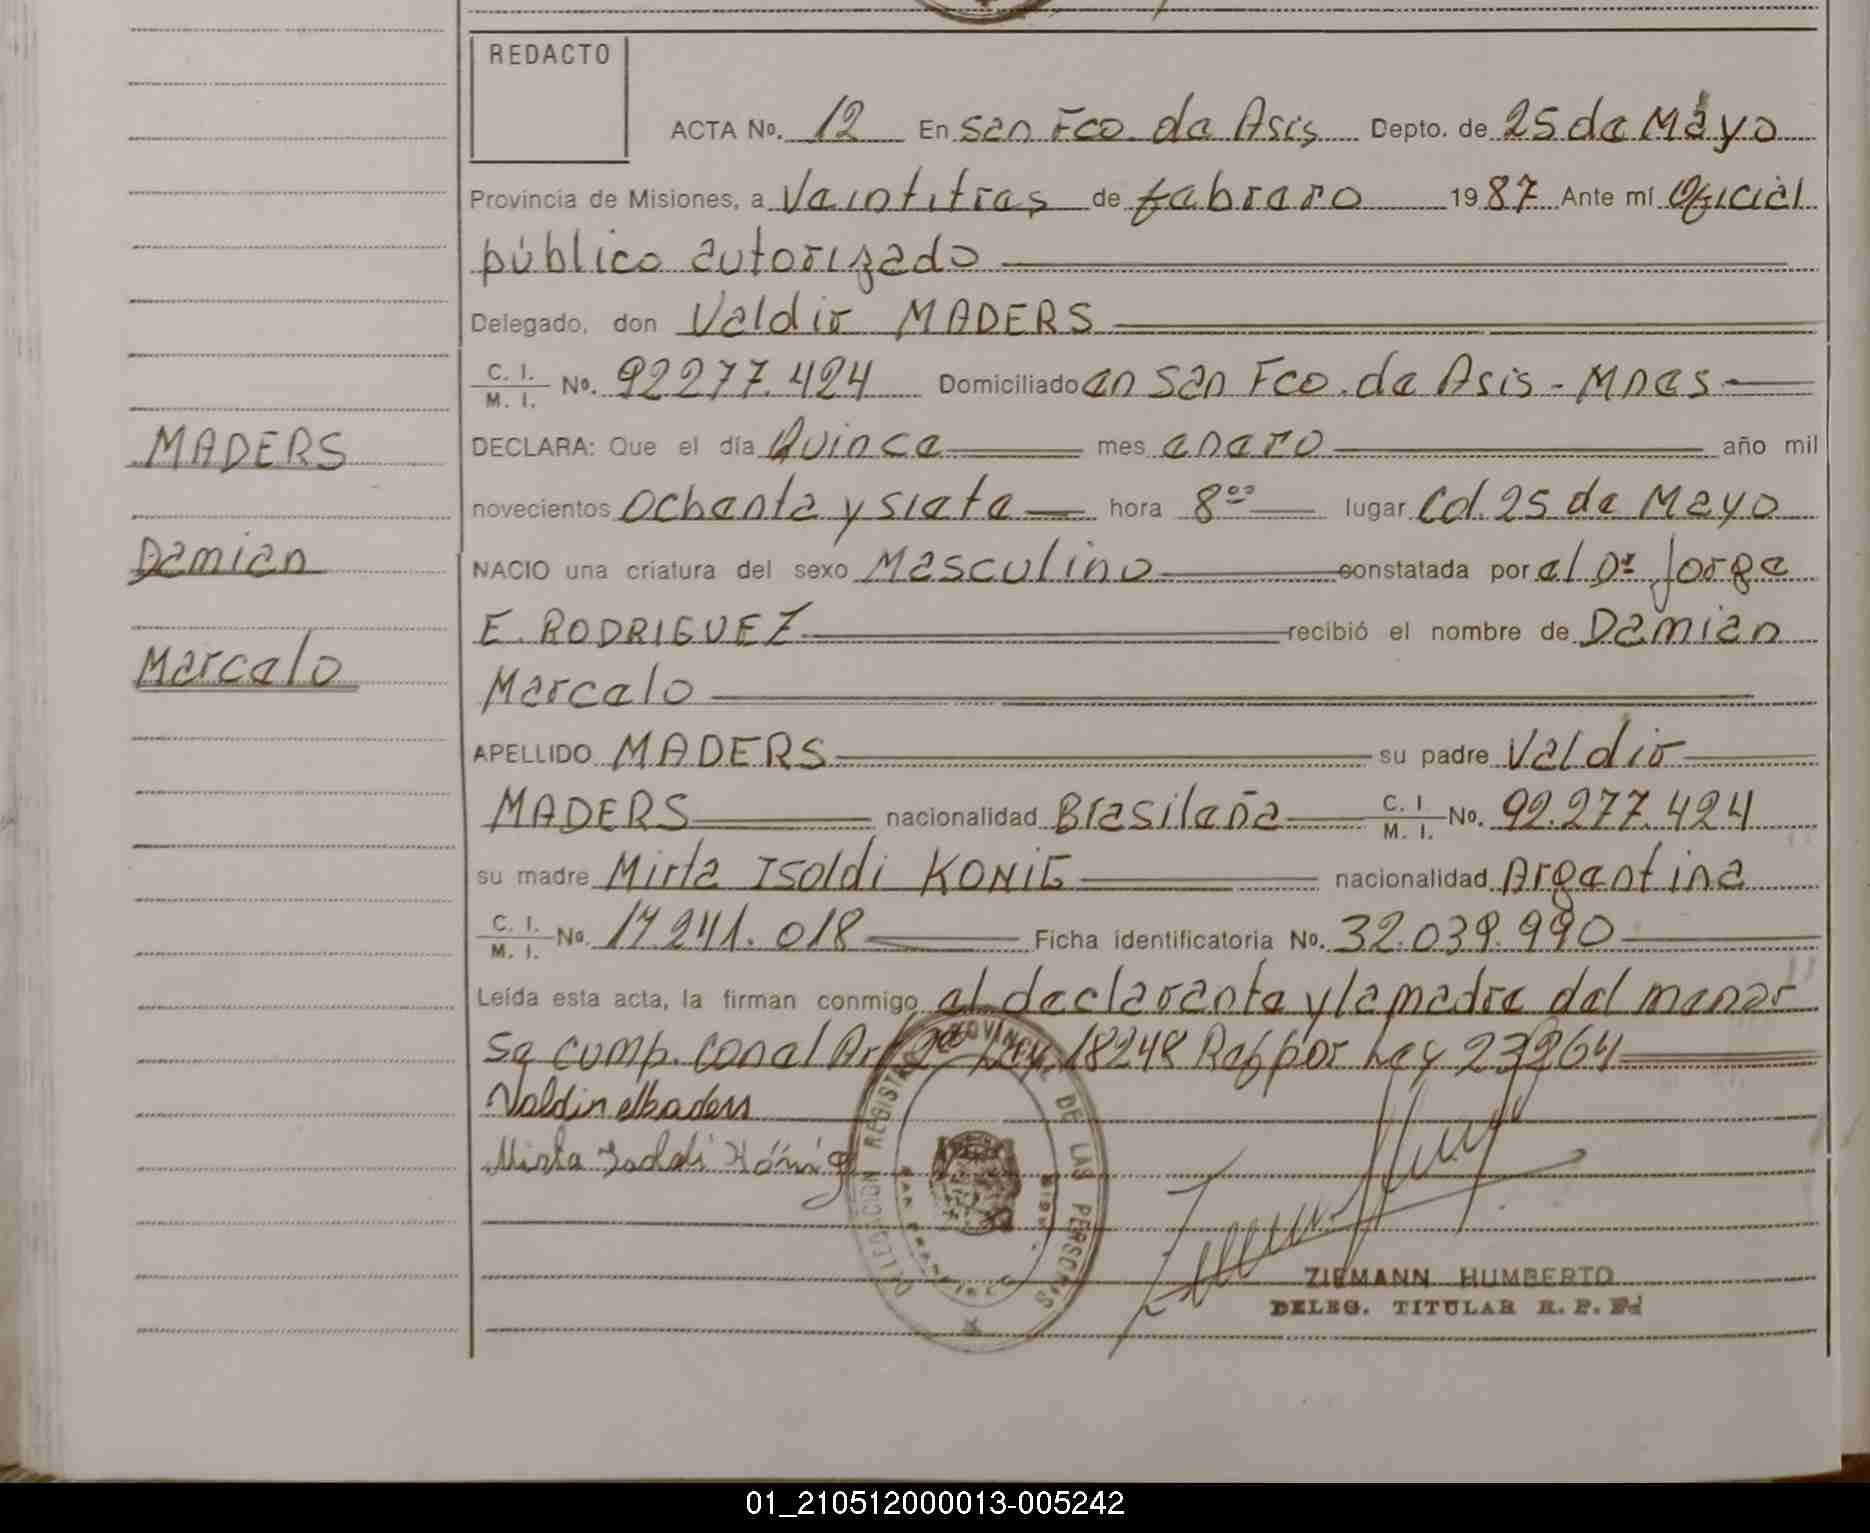 REDACTO
ACTA No. 12 En San Fco. de Asis Depto. de 25 de Mayo
Provincia de Misiones, a Veintitres de febrero 1987 Ante mí Oficial
público autorizado
Delegado, don Valdir MADERS
C. I. / M. I. No. 92277.424 Domiciliado en San Fco. de Asis - Mnes
MADERS
DECLARA: Que el día Quince mes enero año mil
novecientos Ochenta y siete hora 8°° lugar Col. 25 de Mayo
Damian
NACIO una criatura del sexo Masculino constatada por el Dr Jorge
E. RODRIGUEZ recibió el nombre de Damian
Marcelo
Marcelo
APELLIDO MADERS su padre Valdir
MADERS nacionalidad Brasileña C. I / M. I. No. 92.277.424
su madre Mirta Isoldi KONIG nacionalidad Argentina
C. I. / M. I. No. 17.241.018 Ficha identificatoria No. 32.039.990
Leída esta acta, la firman conmigo el declarante y la madre del menor
Se cump. con el Art Ley 18248 Ref por Ley 23264
Valdir Maders
Mirta Isoldi König
DELEGACION REGISTRO PROVINCIAL DE LAS PERSONAS
ZIEMANN HUMBERTO
DELEG. TITULAR R. P. Pd
01_210512000013-005242